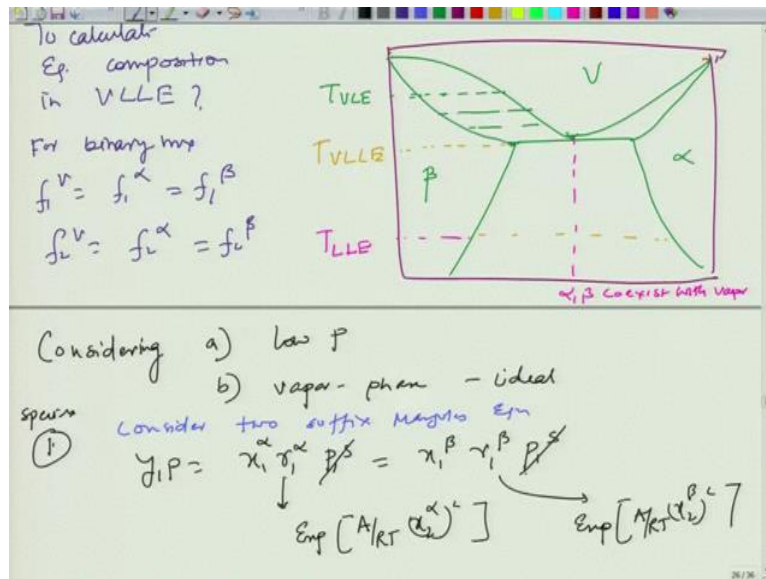 To calculate
Eq. composition
in VLLE ?
For binary mix
f₁ⱽ = f₁^α = f₁^β
f₂ⱽ = f₂^α = f₂^β
V
T_VLE
T_VLLE
β
α
T_LLE
α, β coexist with vapor
Considering a) low P
b) vapor-phase - ideal
①
Consider two suffix Margules Eqn
y₁P = x₁^α γ₁^α P₁^S = x₁^β γ₁^β P₁^S
Exp [A/RT (x₂^α)²]
Exp [A/RT (x₂^β)²]
26/36